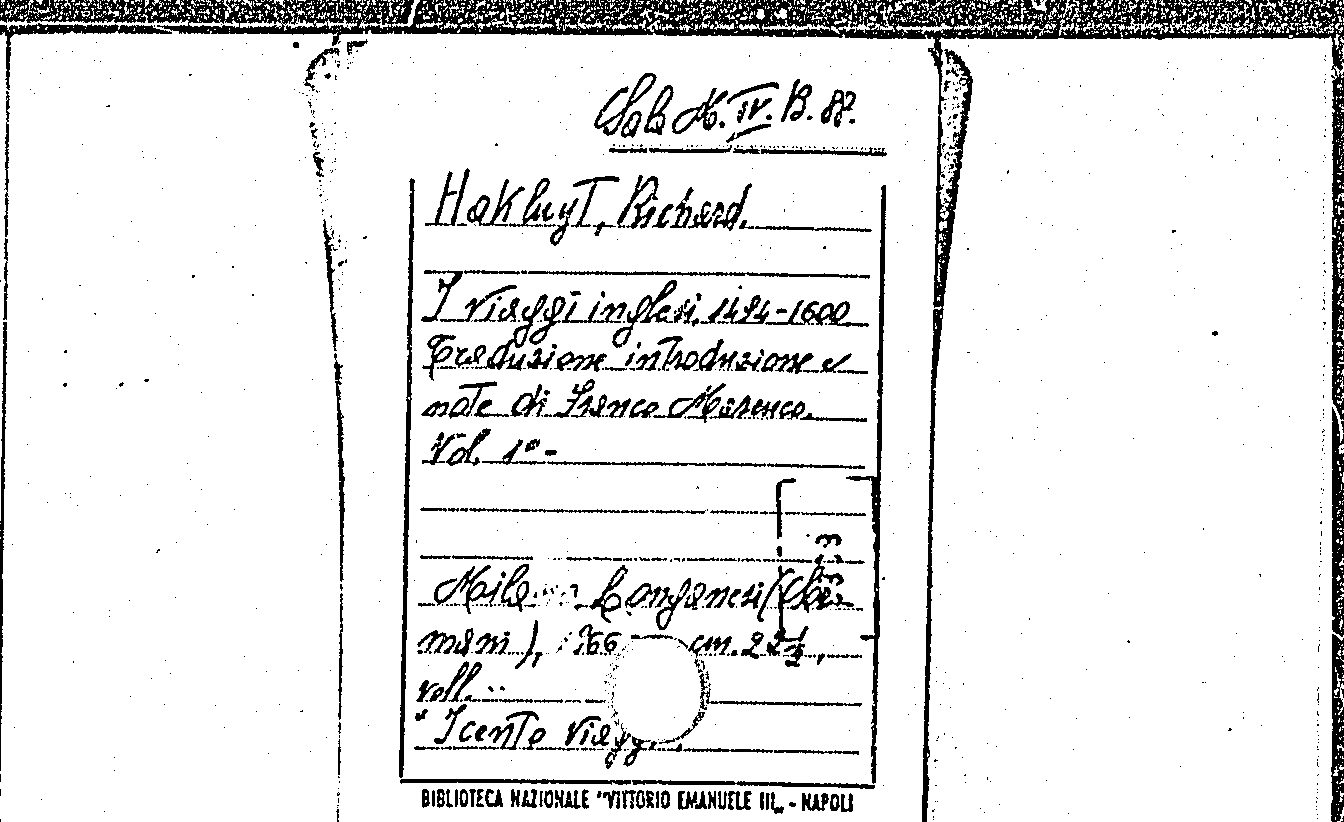 Sala M. IV. B. 88.
Hakluyt, Richard.
I viaggi inglesi. 1494-1600
Traduzione introduzione e
note di Franco Marenco.
Vol. 1° -
Longanesi (
mani), cm. 22½,
rell.
"I cento viagg
BIBLIOTECA NAZIONALE "VITTORIO EMANUELE III„ - NAPOLI